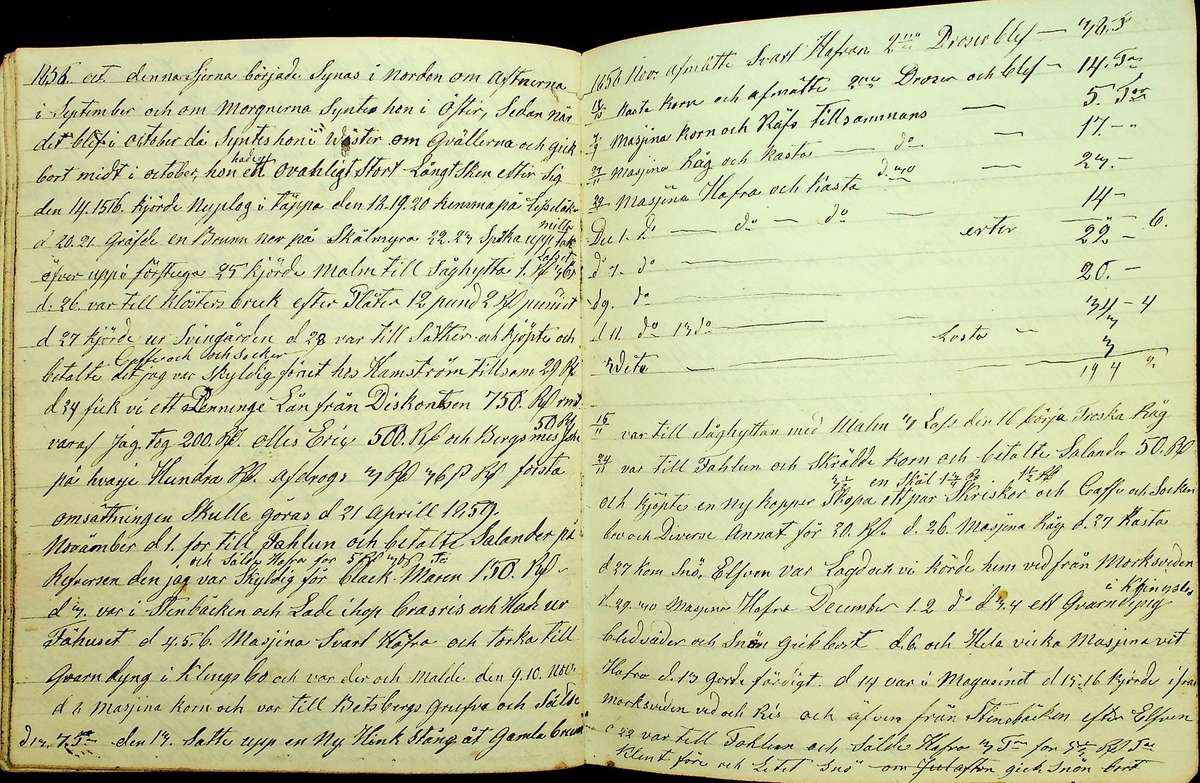 1858. oct. denna stjerna började Synas i Norden om Aftnerna
i September och om Morgnerna Syntes hon i Öster, Sedan när
det blef i October då Syntes hon i Wäster om Qvällerna och gick
bort midt i october, hon hade ett Ovahnligt Stort Långt Sken efter sig
den 14.15.16. kjörde Nyplog i Täppa den 18.19.20 hemma på
d 20.21 gräfde en Brunn nor på Skålmyra 22.23 Spika upp
öfver uppi förstuga 25 kjörde Malm till Såghytta 1.
d. 26. var till Klosters bruk efter Plåter 12 pund 2 Rd pundet
d 27 kjörde ur Svingården d 28 var till Säther och kjöpte och
Caffe och Socker
betalte det jag var Skyldig förut hos Hamström tillsam 29 Rd
d 24 fick vi ett Penninge Lån från Diskontsen 750. Rd rmt
varaf jag tog 200. Rd. Olles Eric 500. Rd och Bergsmes 50 Rd
på hvarje Hundra Rd. afdrogs 3 Rd 36 Rd första
omsättningen Skulle göras d 21 Aprill 1859.
November d 1. for till Fahlun och betalte Salander på
och Sålde Hafra för
Refversen den jag var Skyldig för black Maren 150. Rd
d 3. var i Stenbäcken och Lade ihop brasris och Hade ur
Fähuset d 4.5.6. Masjina Svart Hafra och torka till
Qvarn dyng i Klingsbo och var der och Malde den 9.10. Nov.
d 11 Masjina Korn och var till Betsbergs Grufva och Sålde
den 13. Satte upp en Ny Hink Stång åt Gamla brunn
1858 Nov. afmätte Svart Hafran 2 Droser blef — 36. T
Kasta Korn och afmätte Droser och blef — 14. Tnr
Masjina Korn och Räfs tillsammans — 5. Tnr
Masjina Råg och Kasta — do — 17. —
Masjina Hafra och Kasta — 23. —
Dec 1. do — do — do 14 —
do 7. do — erter 22 — 6.
d 9. do — 20. —
d 11 do 13 do — 34 — 4
dito — Losta — 3
194
15/11 var till Såghyttan med Malm 3 Lass den 16 börja Treska Råg
24/11 var till Fahlun och Skrädde Korn och betalte Salander 50. Rd
och kjöpte en Ny kopper Skopa ett par Skriskor och Caffe och Socker
brev och Diverse Annat för 20. Rd. d. 26. Masjina Råg d. 27 Kasta
d 27 kom Snö, Elfven var Lagd och vi körde hem ved från Morksveden
i Klingsbo
d. 29. 30 Masjina Hafra December 1. 2 do d 3.4 ett Qvarndyng
blidväder och Snön gick bort d. 6. och Hela vicka Masjina vit
Hafra d. 13 gorde färdigt. d 14 var i Magasinet d 15.16 kjörde ifrån
morksveden ved och Ris och äfven från Stenbäcken efter Elfven
d 22 var till Fahlun och Sålde Hafra 3 Tnr for Rd Tnr
Klent före och Litet Snö — om Julafton gick Snön bort